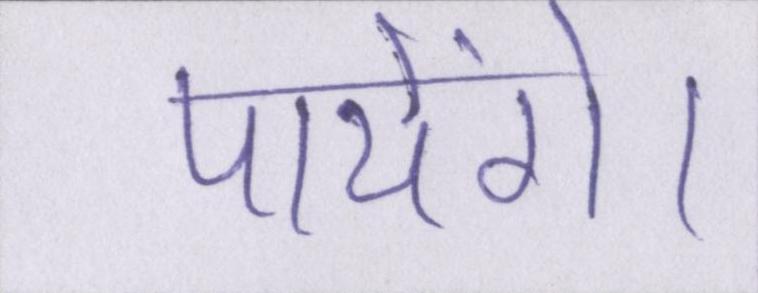 पायेंगे।